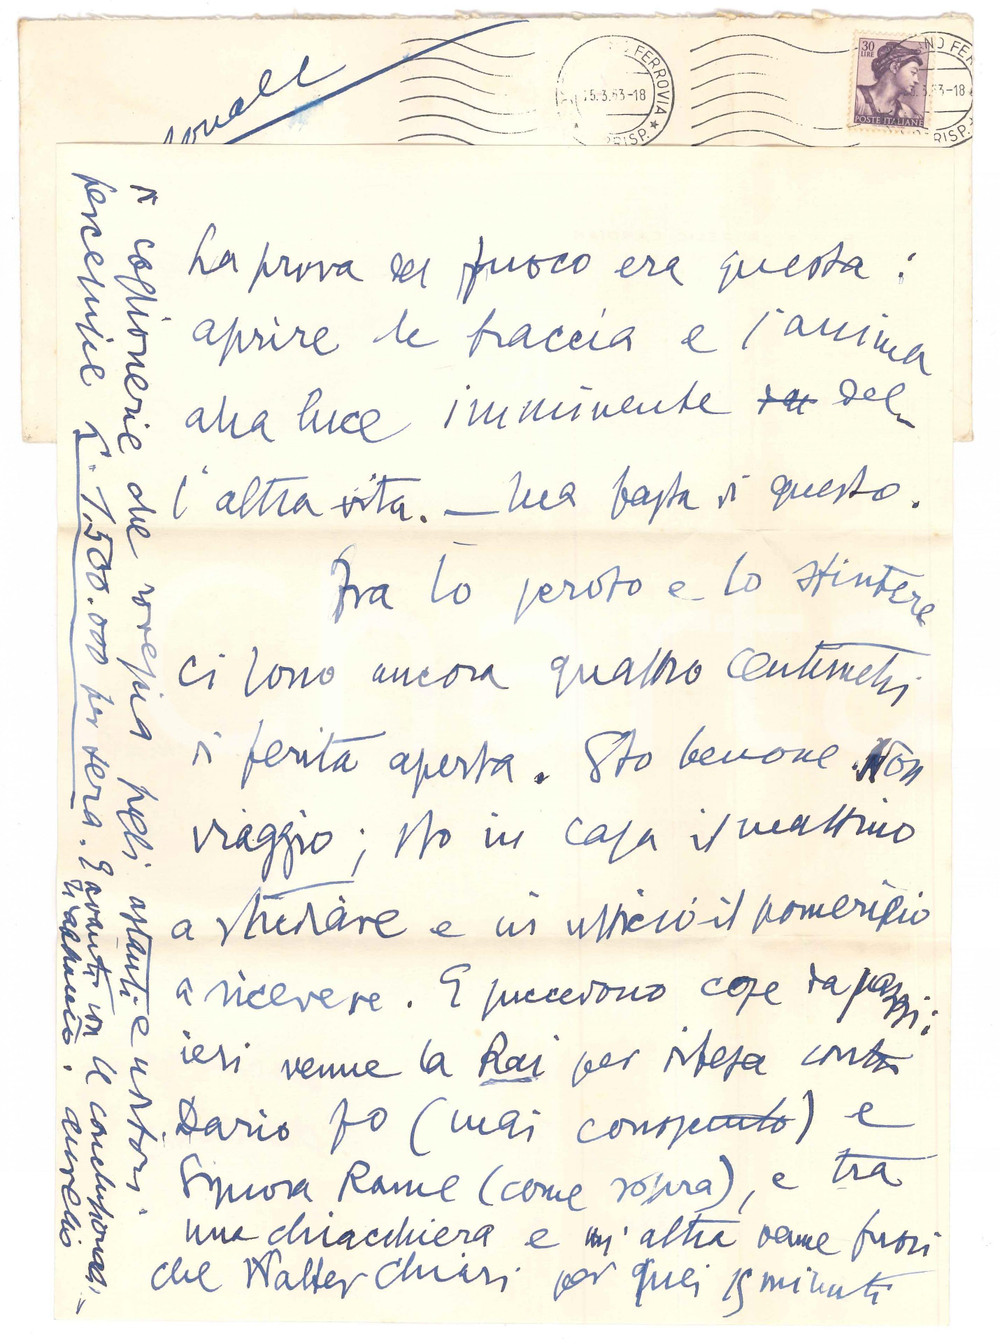 30
LIRE
POSTE ITALIANE
FERROVIA
5.3.63-18
CRISP.
NO FE
.3.63-18
CRISP.
La prova del fuoco era questa:
aprire le braccia e l'anima
alla luce imminente del-
l'altra vita. — Ma basta di questo.
Fra lo sterno e lo
ci sono ancora quattro centimetri
di ferita aperta. Sto benone. Non
viaggio; sto in casa il mattino
a studiare e in ufficio il pomeriggio
a ricevere. E succedono cose da pazzi:
ieri venne la Rai per difesa contro
Dario Fo (mai conosciuto) e
Signora Rame (come sopra), e tra
una chiacchiera e un'altra venne fuori
che Walter Chiari per quei 15 minuti
di coglionerie che rovescia sugli astanti e uditori
percepisce £. 1.500.000 per sera. E avanti con le conclusioni.
Ti abbraccio. Aurelio